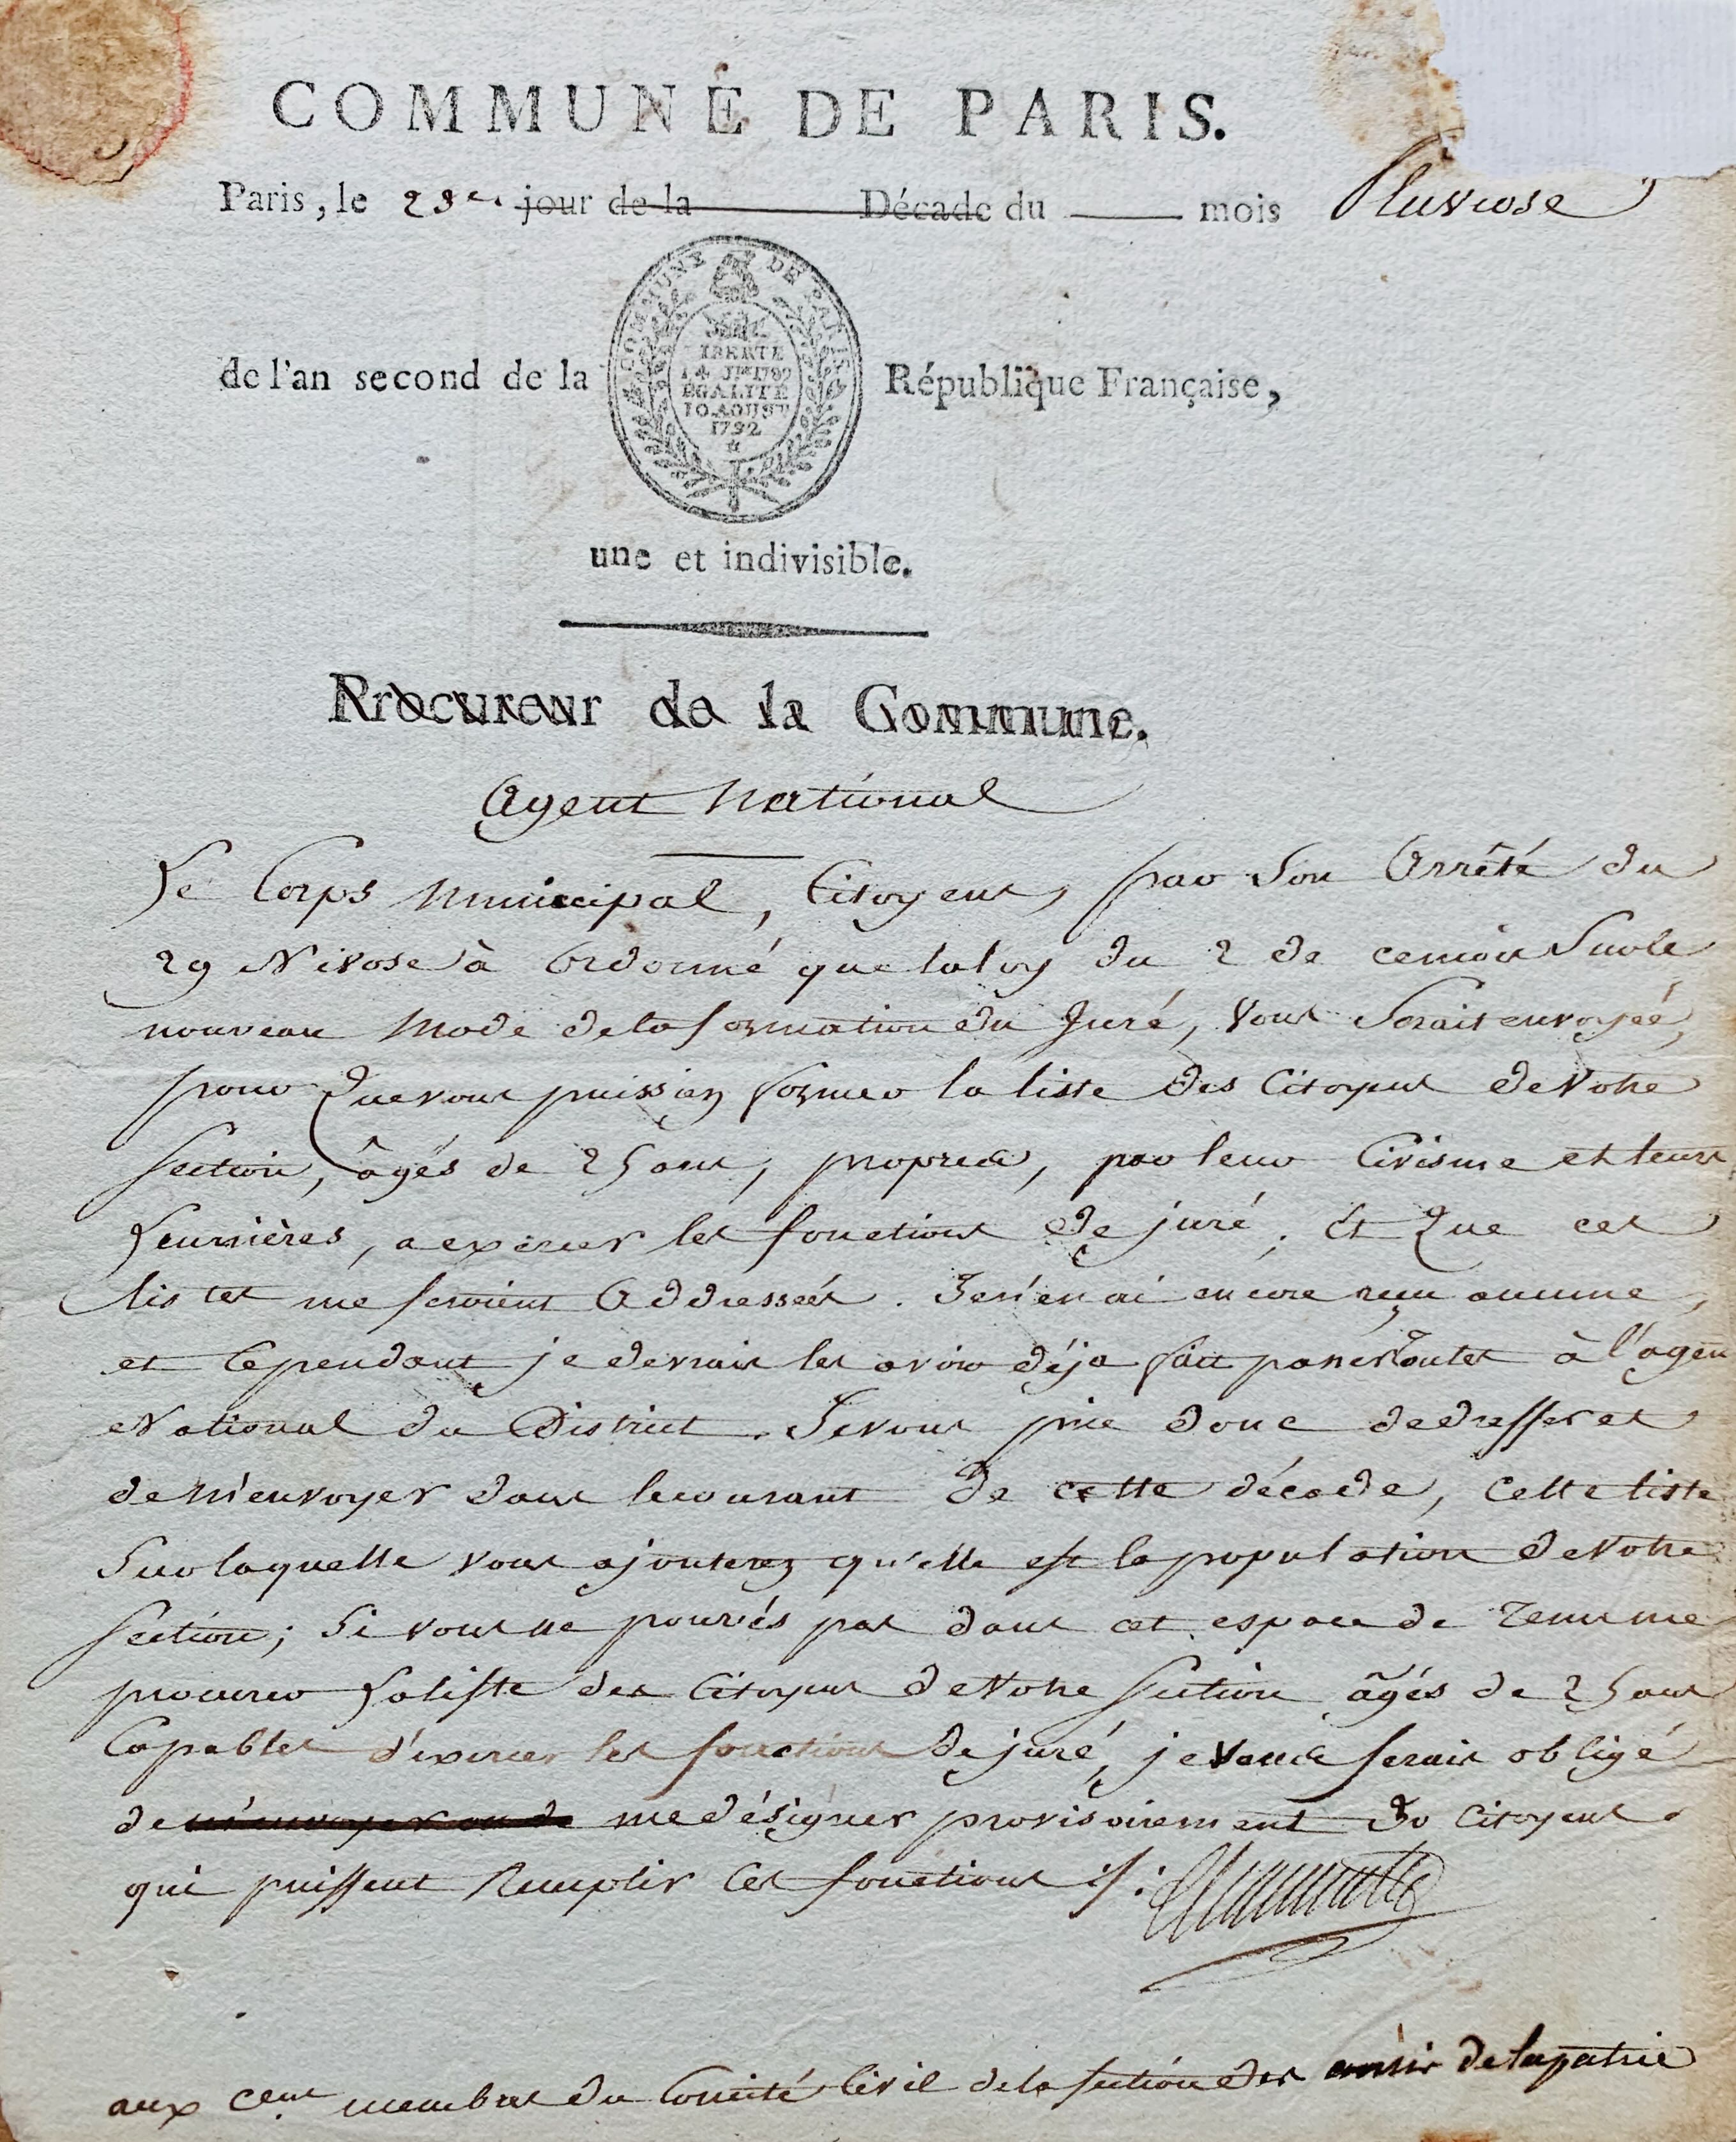 COMMUNE DE PARIS.
Paris, le 23e. jour de la Décade du mois Pluviose
de l'an second de la
COMMUNE DE PARIS
LIBERTE
14 Jet 1789
EGALITE
10 AOUST
1792
République Française,
une et indivisible.
Procureur de la Commune.
Agent National
Le Corps Municipal, Citoyens, par Son Arrêté du
29 Nivose à Ordonné que la loy du 2 de ce mois Sur le
nouveau Mode de la formation du Juré, Vous Serait envoyéé,
pour Que vous puissiez former la liste des Citoyens de Votre
Section, âgés de 25 ans, propres, par leur Civisme et leurs
Lumières, a exercer les fonctions de juré; Et Que ces
listes me seroient Addresséés. Je n'en ai encore reçu aucune,
et Cependant je devrais les avoir déja fait passer toutes à l'agent
National du District. Je vous prie donc de dresser et
de M'envoyer dans le courant de cette décade, Cette liste
Sur laquelle vous ajouterez qu'elle est la population de Votre
Section; Si vous ne pouviés pas dans cet espace de Tems me
procurer La liste des Citoyens de Votre Section âgés de 25 ans
Capables d'exercer les fonctions de juré, je vous serais obligé
de m'envoyer ou de me désigner provisoirement 30 Citoyens
qui puissent Remplir Ces fonctions ./.
aux cens membres du Comité Civil de la Section des amis de la patrie